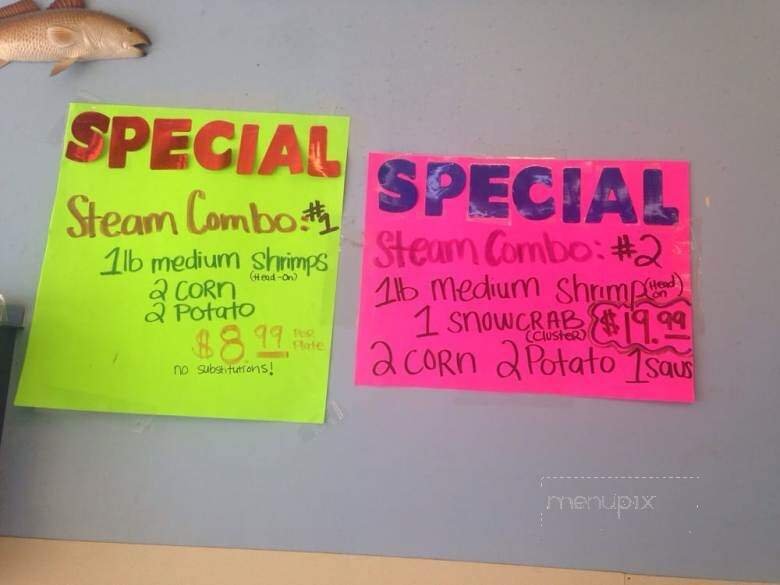 SPECIAL
Steam Combo: #1
1lb medium shrimps
(Head-On)
2 CORN
2 Potato
$8.99 Per Plate
no substitutions!
SPECIAL
Steam Combo: #2
1lb medium shrimp (Head on)
1 SNOWCRAB $19.99
(CLUSTER)
2 CORN 2 Potato 1 saus
menupix